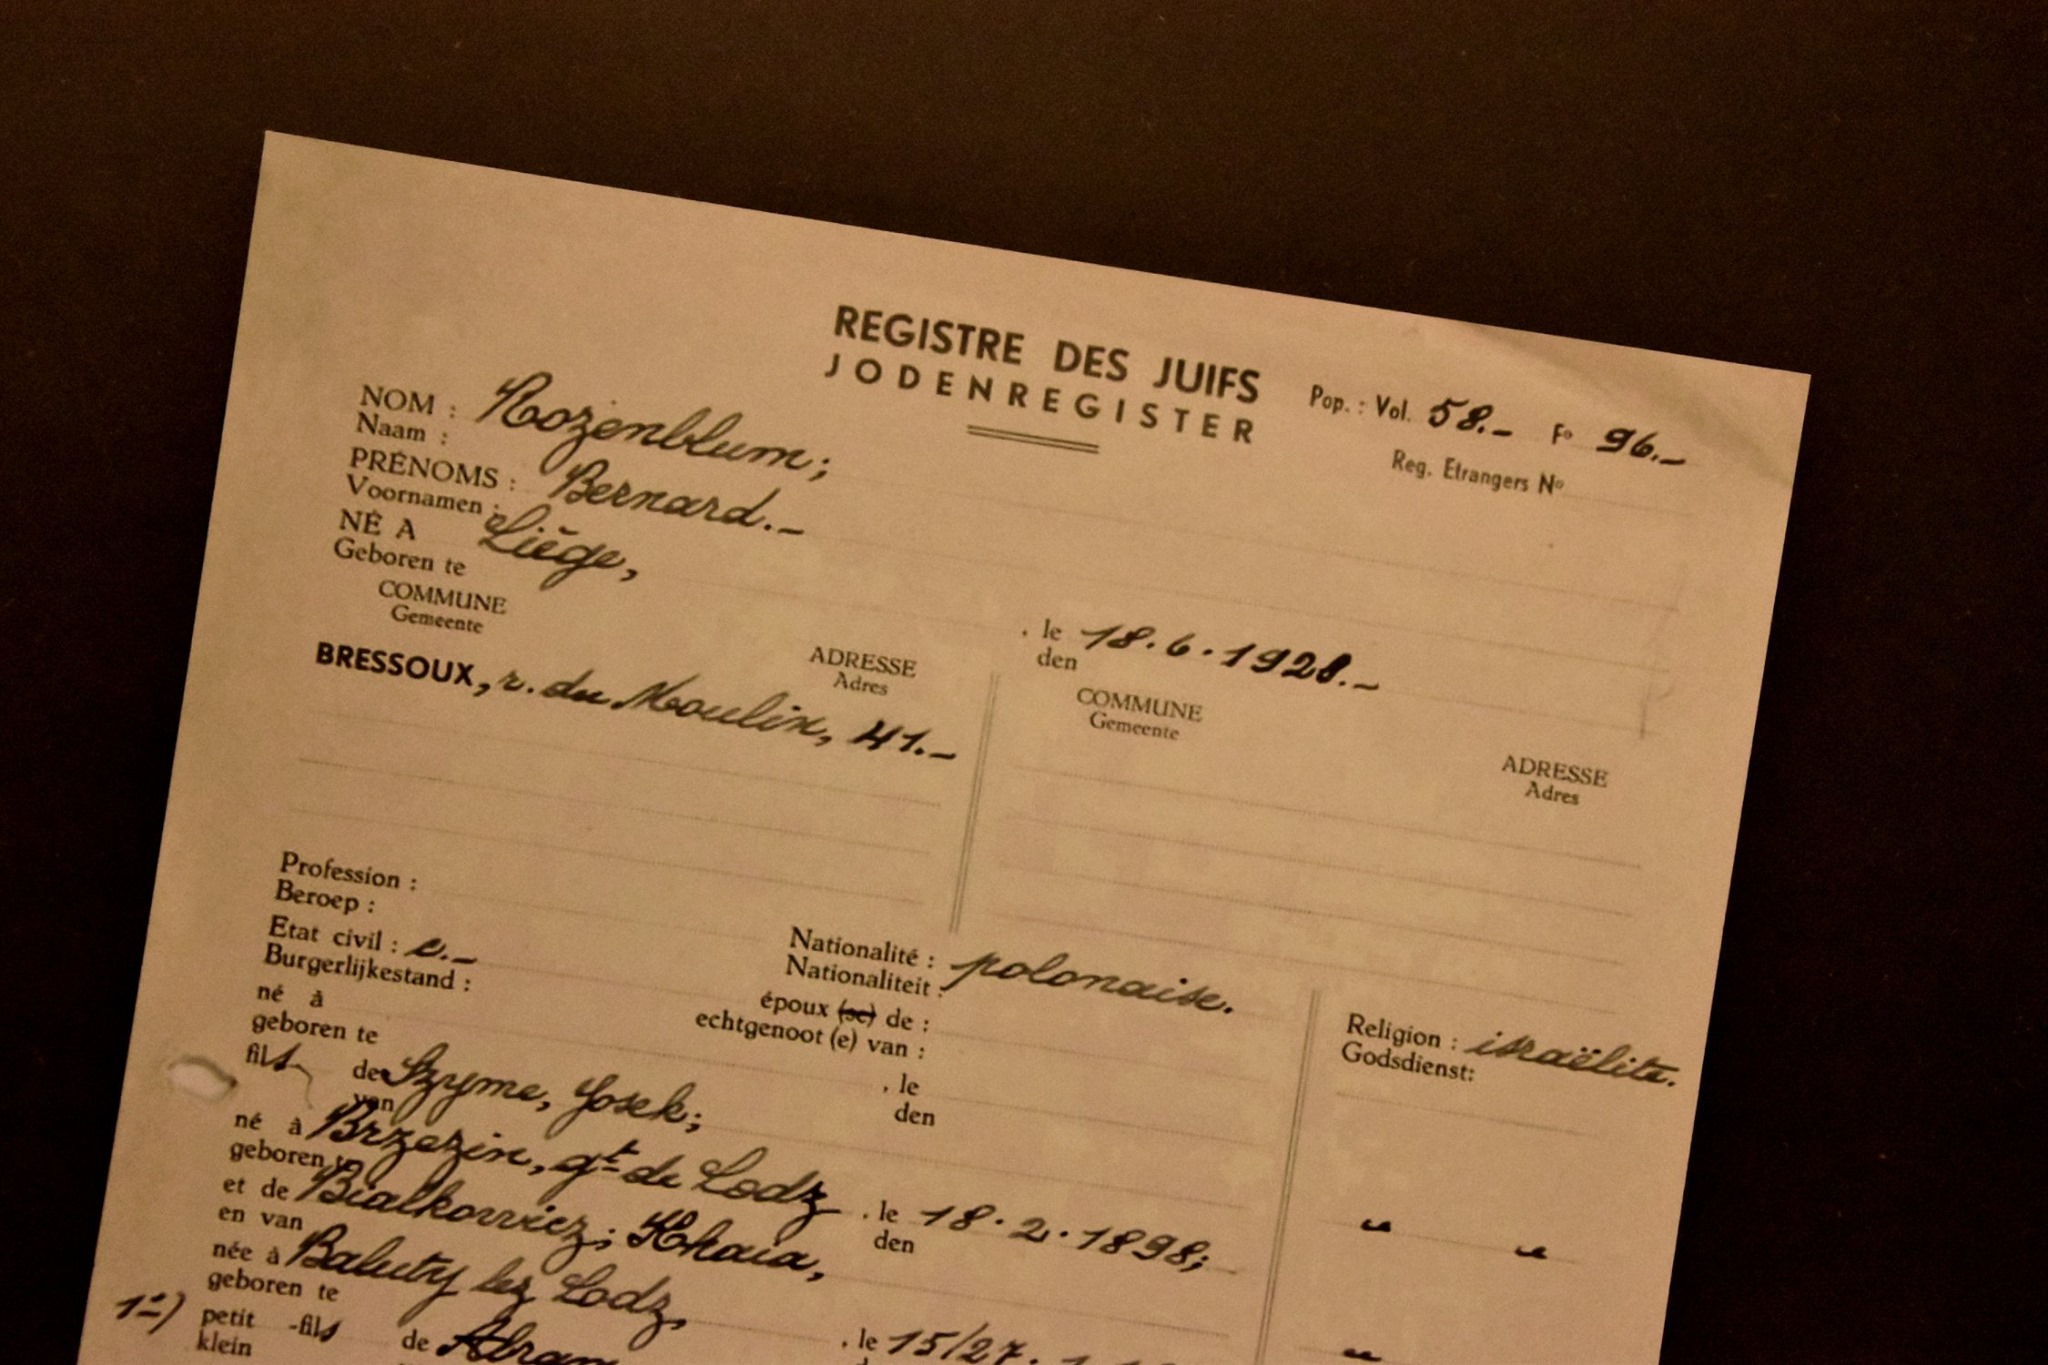 REGISTRE DES JUIFS
JODENREGISTER
Pop. : Vol. 58.- F° 96.-
Reg. Etrangers N°
NOM : Rozenblum;
Naam :
PRÉNOMS : Bernard.-
Voornamen :
NÉ A Liège, , le 18.6.1928.-
Geboren te den
COMMUNE ADRESSE COMMUNE ADRESSE
Gemeente Adres Gemeente Adres
BRESSOUX, r. du Moulin, 41.-
Profession :
Beroep :
Etat civil : c.- Nationalité : polonaise. Religion : israëlite.
Burgerlijkestand : Nationaliteit : Godsdienst:
né à époux (se) de :
geboren te echtgenoot (e) van :
, le
den
fils de Szyme, Josek;
van
né à Brzezin, gt de Lodz , le 18.2.1898; " "
geboren te den
et de Bialkowicz; Khaia,
en van
née à Baluty lez Lodz, , le 15/27. "
geboren te
1°) petit -fils de Abram
klein